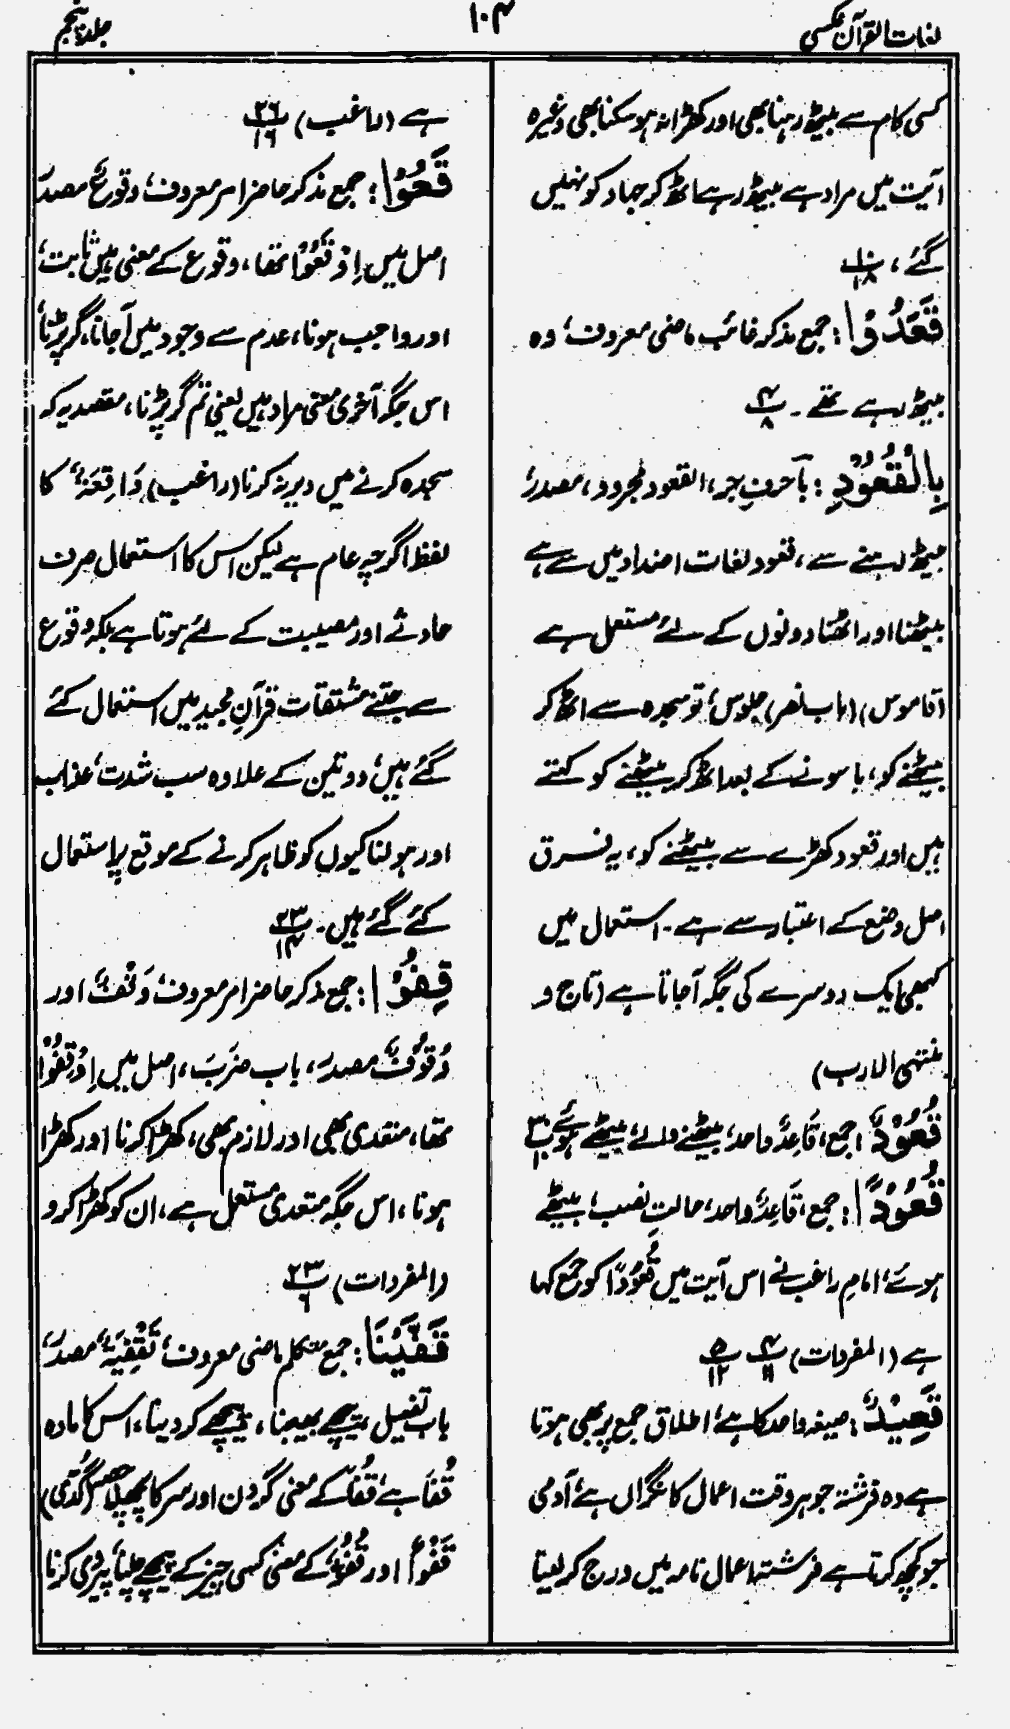 لغات القرآن عکسی
۱۰۴
جلد پنجم
کسی کام سے بیٹھ رہنا بھی اور کھڑا نہ ہو سکنا بھی وغیرہ
آیت میں مراد ہے بیٹھ رہے اٹھ کر جہاد کو نہیں
گئے، ۱۰/۱۸
قَعَدُوْا: جمع مذکر غائب ماضی معروف، وہ
بیٹھ رہے تھے۔ ۴/۸
بِالْقُعُوْدِ: بآ حرفِ جر، القعود مجرور، مصدر
بیٹھ رہنے سے، قعود لغات اضداد میں سے ہے
بیٹھنا اور اٹھنا دونوں کے لئے مستعمل ہے
(قاموس) (باب نصر) جلوس، تو سجدہ سے اٹھ کر
بیٹھنے کو، یا سونے کے بعد اٹھ کر بیٹھنے کو کہتے
ہیں اور قعود کھڑے سے بیٹھنے کو، یہ فرق
اصل وضع کے اعتبار سے ہے۔ استعمال میں
کبھی ایک دوسرے کی جگہ آ جاتا ہے (تاج و
منتہی الارب)
قُعُوْدٌ: جمع، قَاعِدٌ واحد، بیٹھنے والے، بیٹھے ہوئے ۳۰/۱۰
قُعُوْدًا: جمع، قَاعِدٌ واحد، حالتِ نصب، بیٹھے
ہوئے، امامِ راغب نے اس آیت میں قُعُوْدًا کو جمع کہا
ہے (المفردات) ۴/۱۱ ۵/۱۲
قَعِیْدٌ: صیغہ واحد کا ہے، اطلاق جمع پر بھی ہوتا
ہے وہ فرشتہ جو ہر وقت اعمال کا نگراں ہے، آدمی
جو کچھ کرتا ہے فرشتہ اعمال نامہ میں درج کر لیتا
ہے (راغب) ۲۶/۱۶
قَعُوْا: جمع مذکر حاضر امر معروف، وقوعٌ مصدر
اصل میں اِوْقَعُوْا تھا، وقوع کے معنی ہیں ثابت،
اور واجب ہونا، عدم سے وجود میں آ جانا، گر پڑنا،
اس جگہ آخری معنی مراد ہیں یعنی تم گر پڑنا، مقصد یہ کہ
سجدہ کرنے میں دیر نہ کرنا (راغب) وَاقِعَۃٌ کا
لفظ اگرچہ عام ہے لیکن اس کا استعمال صرف
حادثے اور مصیبت کے لئے ہوتا ہے بلکہ وقوع
سے جتنے مشتقات قرآنِ مجید میں استعمال کئے
گئے ہیں، دو تین کے علاوہ سب شدت، عذاب
اور ہولناکیوں کو ظاہر کرنے کے موقع پر استعمال
کئے گئے ہیں۔ ۲۳/۱۴
قِفُوْا: جمع مذکر حاضر امر معروف، وَقْفٌ، اور
وُقُوْفٌ مصدر، باب ضَرَبَ، اصل میں اِوْقِفُوْا
تھا، متعدی بھی اور لازم بھی، کھڑا کرنا اور کھڑا
ہونا، اس جگہ متعدی مستعمل ہے، ان کو کھڑا کرو
(المفردات) ۲۳/۶
قَفَّیْنَا: جمع متکلم ماضی معروف، تَقْفِیَۃٌ، مصدر،
باب تفعیل، پیچھے بھیجنا، پیچھے کر دینا، اس کا مادہ
قُفَا ہے، قُفاً کے معنی گردن اور سر کا پچھلا حصہ (گدّی)
قَفْوٌ اور قُفُوٌّ کے معنی کسی چیز کے پیچھے چلنا، پیروی کرنا